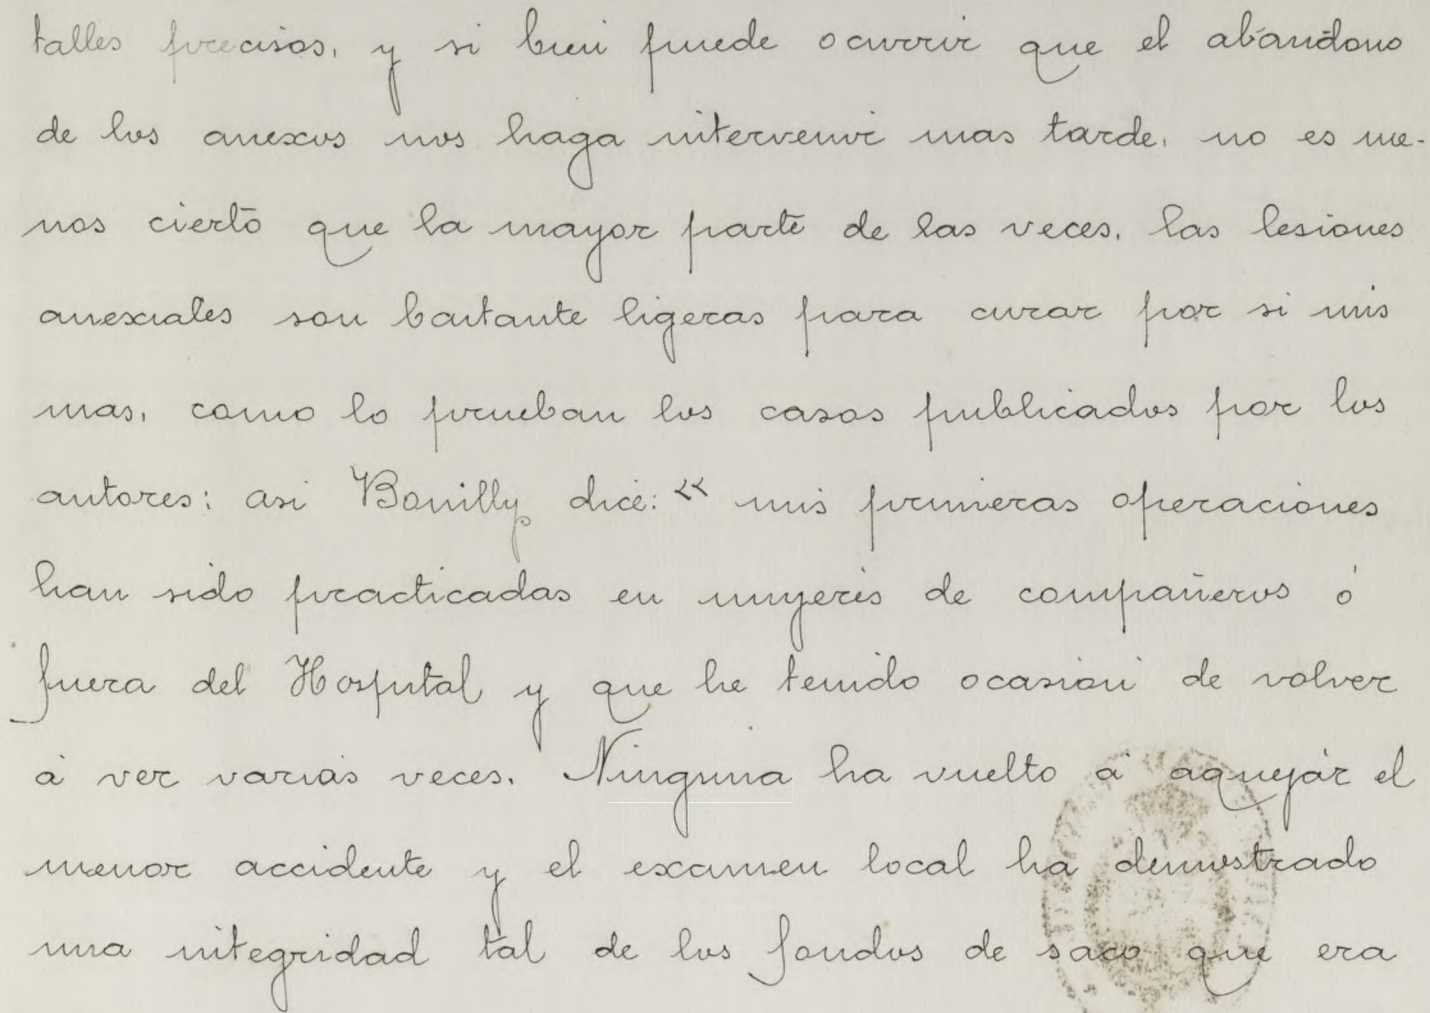 talles precisos, y si bien puede ocurrir que el abandono
de los anexos nos haga intervenir mas tarde, no es me-
nos cierto que la mayor parte de las veces, las lesiones
anexiales son bastante ligeras para curar por si mis
mas, como lo prueban los casos publicados por los
autores: asi Bouilly dice: « mis primeras operaciones
han sido practicadas en mujeres de compañeros ó
fuera del Hospital y que he tenido ocasion de volver
á ver varias veces. Ninguna ha vuelto á aquejar el
menor accidente y el examen local ha demostrado
una integridad tal de los fondos de saco que era